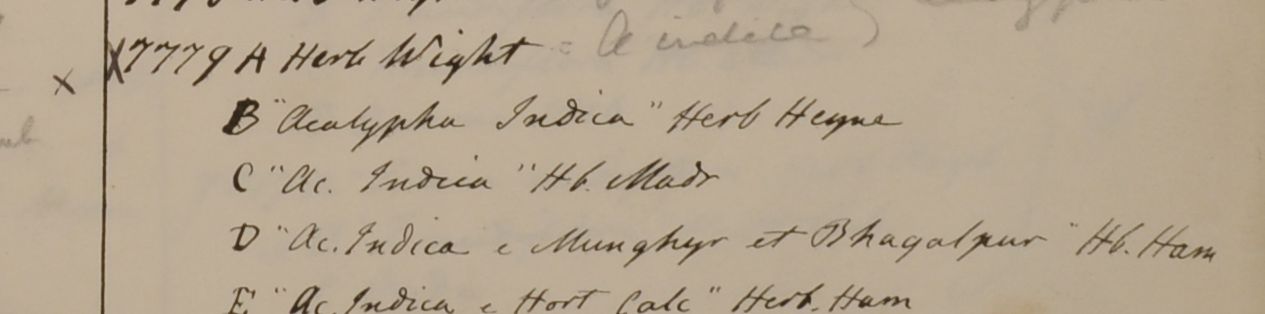 X 7779 A Herb Wight = A indica )
x
B "Acalypha Indica" Herb Heyne
C "Ac. Indica" Hb. Madr
D "Ac. Indica e Munghyr et Bhagalpur" Hb. Ham
E "Ac. Indica e Hort Calc" Herb. Ham